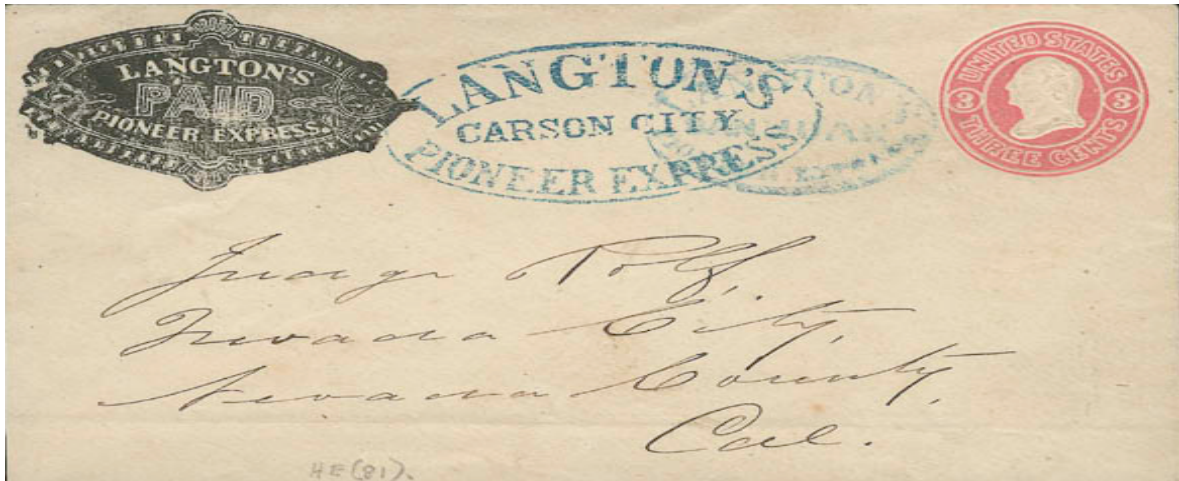 LANGTON'S
PAID
PIONEER EXPRESS.
LANGTON'S
CARSON CITY
PIONEER EXPRESS
LANGTON'S
UNITED STATES
3 3
THREE CENTS
Judge
Nevada City,
Nevada County,
Cal.
HE(81).